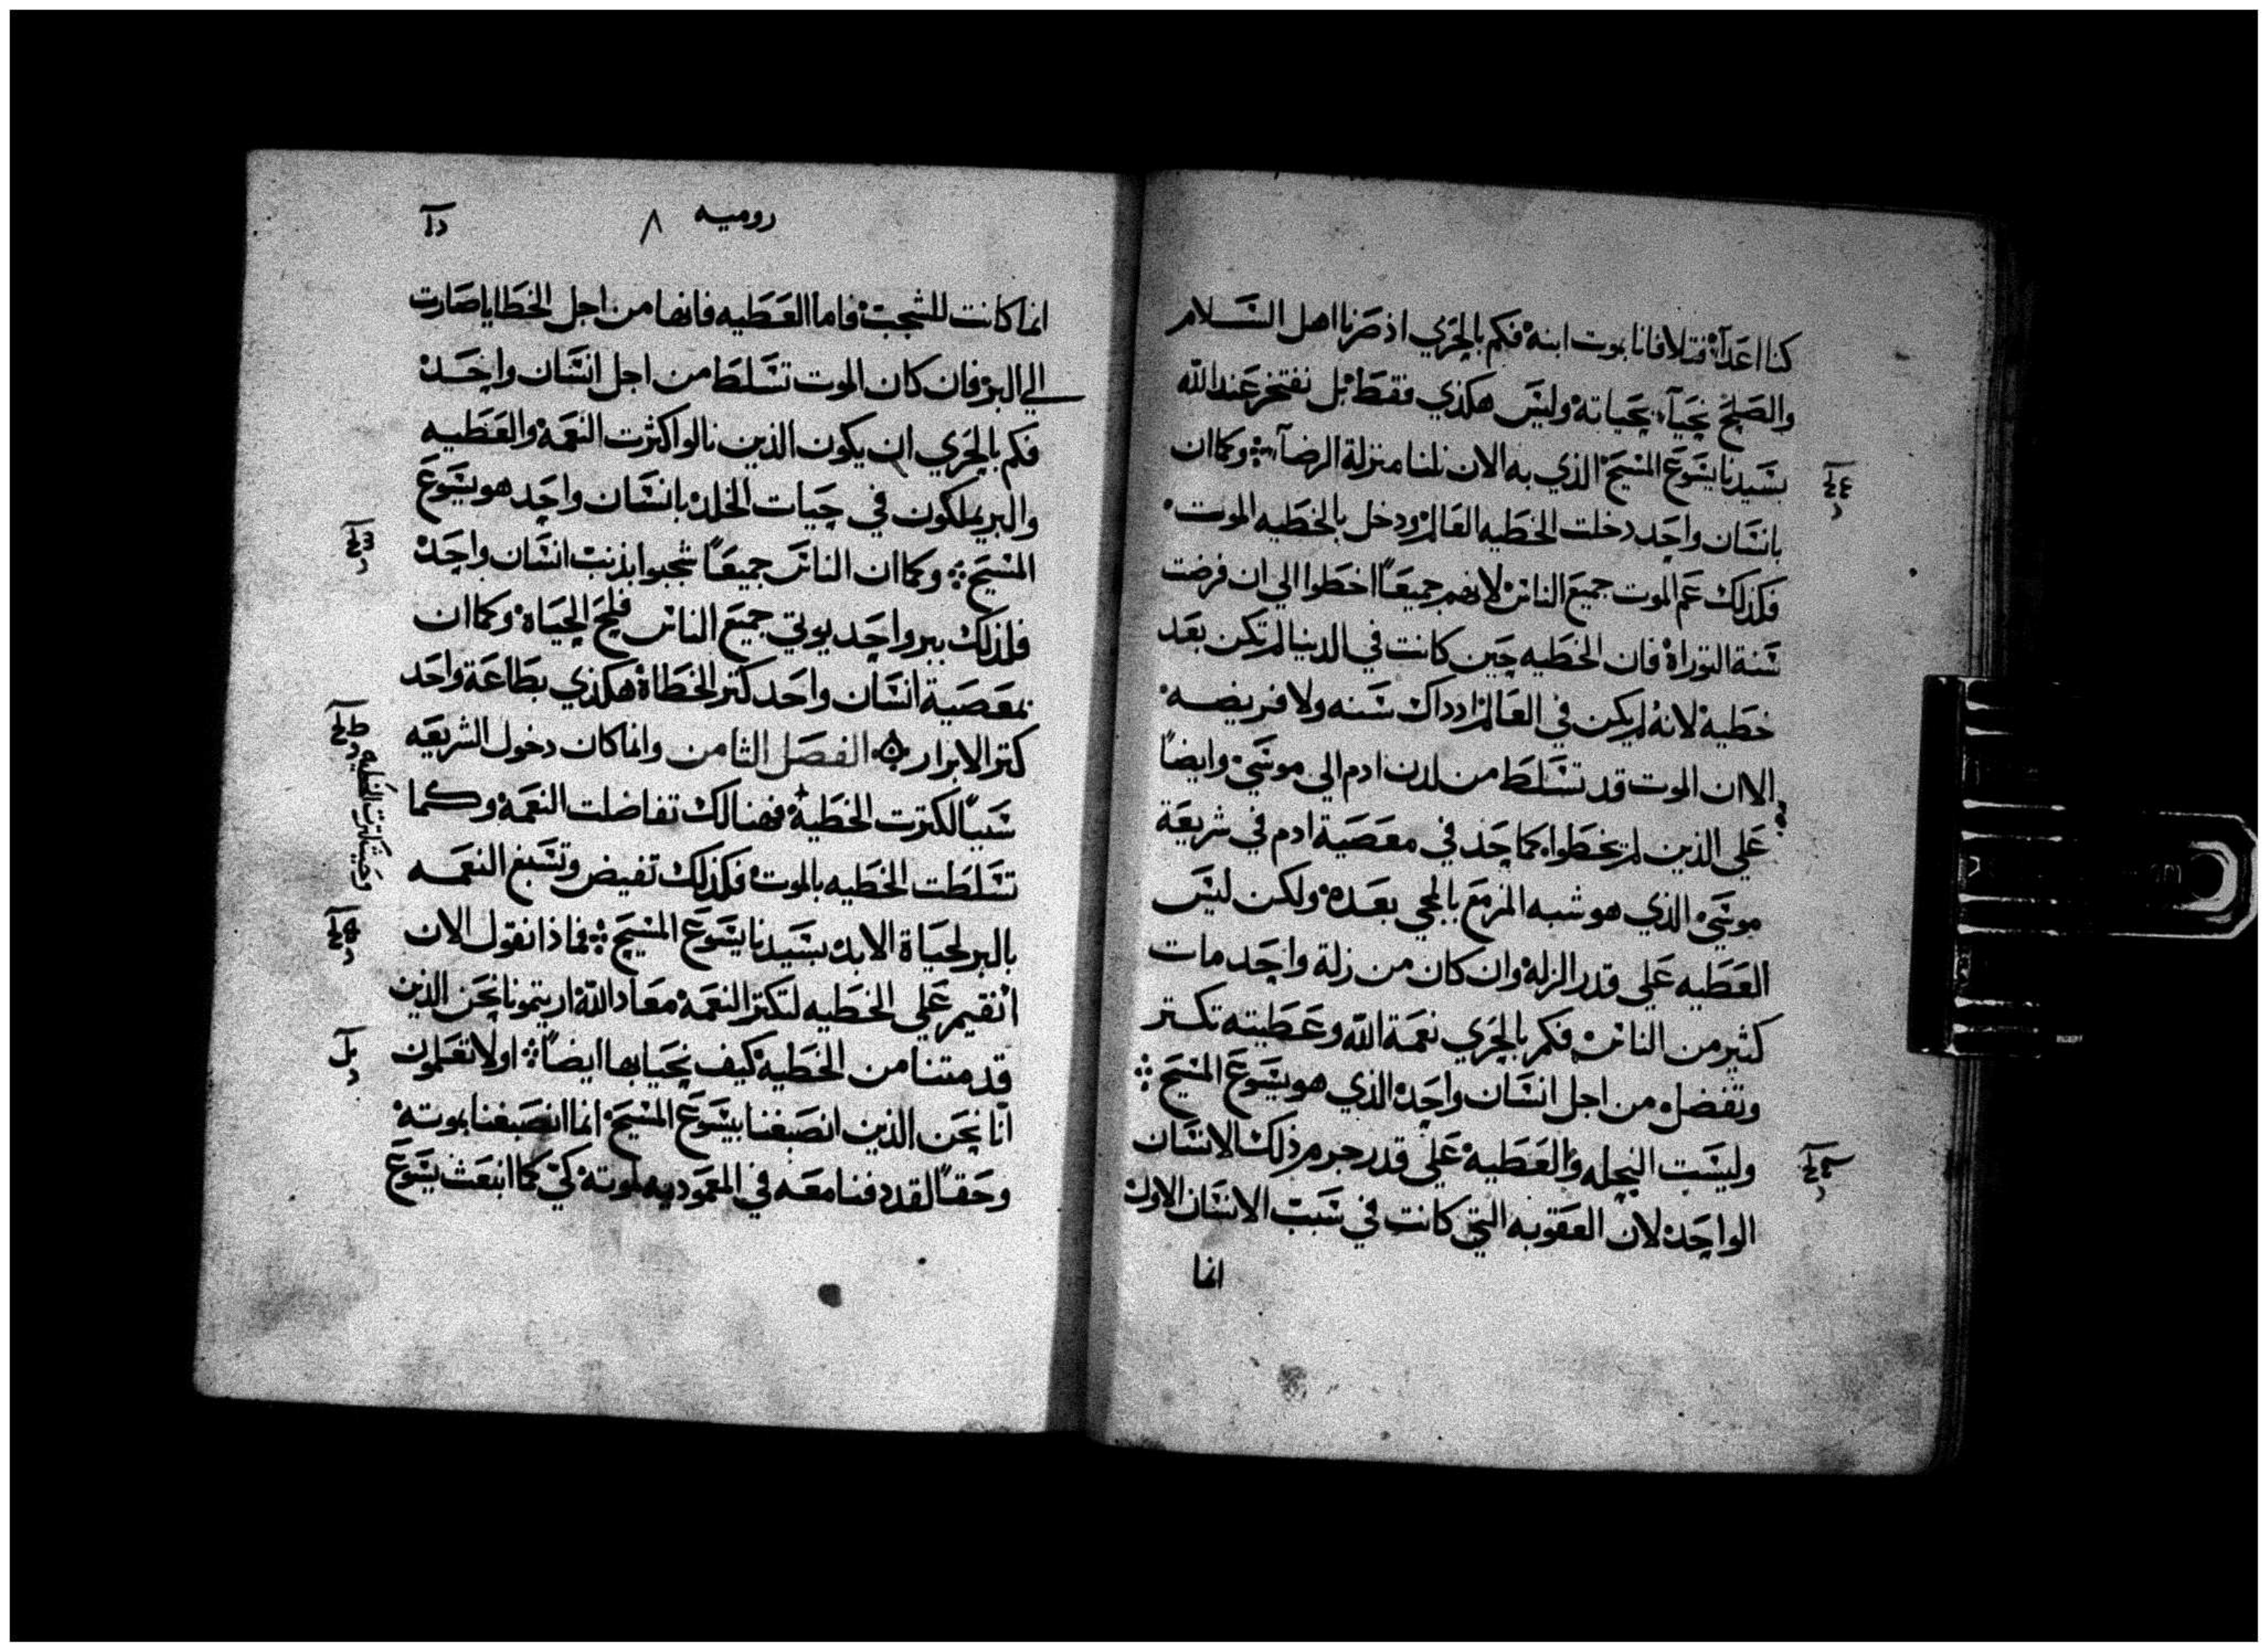 كنا اعدآ فتلافانا بموت ابنه فكم بالحري اذ صرنا اهل السلام
والصلح نحيآء بحياته وليس هكذي فقط بل نفتخر عند الله
بسيدنا يسوع المسيح الذي به الان نلنا منزلة الرضآ وكما ان
بانسان واحد دخلت الخطيه العالم ودخل بالخطيه الموت
فكذلك عم الموت جميع الناس لانهم جميعاً اخطوا الي ان فرضت
سنة التوراة فان الخطيه حين كانت في الدنيا لم تكن بعد
خطية لانه لم يكن في العالم اذ داك سنه ولا فريضه
الا ان الموت قد تسلط من لدن ادم الي موسي وايضاً
علي الذين لم يخطوا كما حذ في معصية ادم في شريعة
موسي الذي هو شبه المزمع بالمجي بعده ولكن ليس
العطيه علي قدر الزلة وان كان من زلة واحد مات
كثير من الناس فكم بالحري نعمة الله وعطيته تكتر
وتفضل من اجل انسان واحد الذي هو يسوع المسيح
وليست النحله والعطية علي قدر جرم ذلك الانسان
الواحد لان العقوبه التي كانت في سبب الانسان الاول
انما
روميه ٨
انما كانت للشجب فاما العطيه فانها من اجل الخطايا صارت
الي البر فان كان الموت تسلط من اجل انسان واحد
فكم بالحري ان يكون الذين نالوا كثرت النعمة والعطيه
والبر يملكون في حيات الخلد بانسان واحد هو يسوع
المسيح وكما ان الناس جميعاً شجبوا بذنب انسان واحد
فلذلك ببر واحد يوتي جميع الناس فلح الحياة وكما ان
بمعصية انسان واحد كتر الخطاة هكذي بطاعة واحد
كتر الابرار الفصل الثامن وانما كان دخول الشريعه
سبباً لكترت الخطية فهنالك تفاضلت النعمة وكما
وحيث كترت الخطيه
تسلطت الخطيه بالموت فكذلك تفيض وتسبغ النعمه
بالبر لحياة الابد بسيدنا يسوع المسيح فماذا نقول الان
انقيم علي الخطيه لتكتر النعمة معاد الله اريتمونا نحن الذين
قد متنا من الخطية كيف نحيا بها ايضاً اولا تعلمون
انا نحن الذين انصبغنا بيسوع المسيح انما انصبغنا بموته
وحقاً لقد دفنا معه في المعموديه لموته كي كما انبعث يسوع